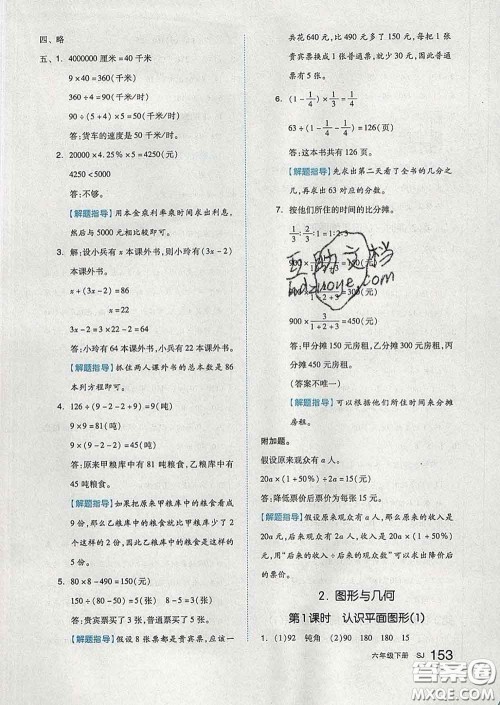 四、略
五、1. 4000000 厘米=40 千米
9×40=360(千米)
360÷4=90(千米/时)
90÷(5+4)×5=50(千米/时)
答:货车的速度是 50 千米/时。
2. 20000×4.25%×5=4250(元)
4250<5000
答:不够。
【解题指导】用本金乘利率乘时间求出利息,
然后与 5000 元相比较即可。
3. 解:设小兵有 x 本课外书,则小玲有(3x-2)
本课外书。
x+(3x-2)=86
x=22
3x-2=3×22-2=64
答:小玲有 64 本课外书,小兵有 22 本课外书。
【解题指导】抓住两人课外书的总本数是 86
本列方程即可。
4. 126÷(9-2-2+9)=9(吨)
9×9=81(吨)
9×(9-2-2)=45(吨)
答:原来甲粮库中有 81 吨粮食,乙粮库中有
45 吨粮食。
【解题指导】如果把原来甲粮库中的粮食看成
9 份,那么乙粮库中的粮食比甲粮库少了
2 个这样的 2 份,因此乙粮库中的粮食有这样
的 5 份。
5. 80×8-490=150(元)
150÷(80-50)=5(张)
8-5=3(张)
答:贵宾票买了 3 张,普通票买了 5 张。
【解题指导】假设 8 张票都是贵宾票,则一
共花 640 元,多了 150 元。而每把 1 张
贵宾票换成 1 张普通票,就少 30 元,因此普通
票有 5 张。
6. (1-1/4)×1/4=
63÷=126(页)
答:这本书共有 126 页。
【解题指导】先求出第二天看了全书的几分之
几,再求出 63 对应的分数。
7. 按他们所住的时间的比分摊。
1/3:=1:2:3
900×1/1+2+3=150(元)
900×=300(元)
900×3/1+2+3=450(元)
答:甲分摊 150 元房租,乙分摊 300 元房租,
丙分摊 450 元房租。
(答案不唯一)
【解题指导】可以根据他们所住的时间来分摊
房租。
附加题。
假设原来观众有 a 人。
20a×(1+50%)÷2a=15(元)
答:降低票价后票价为每张 15 元。
【解题指导】假设原来观众有 a 人,那么原来的收入是
20a 元,后来的收入是 20a×(1+50%)
元,用“后来的收入÷后来的观众数”可以求出降价后
的票价。
2. 图形与几何
第 1 课时 认识平面图形(1)
1. (1)92 钝角 (2)90 180 180 15
六年级下册 SJ 153
互助文档
hdzuoye.com